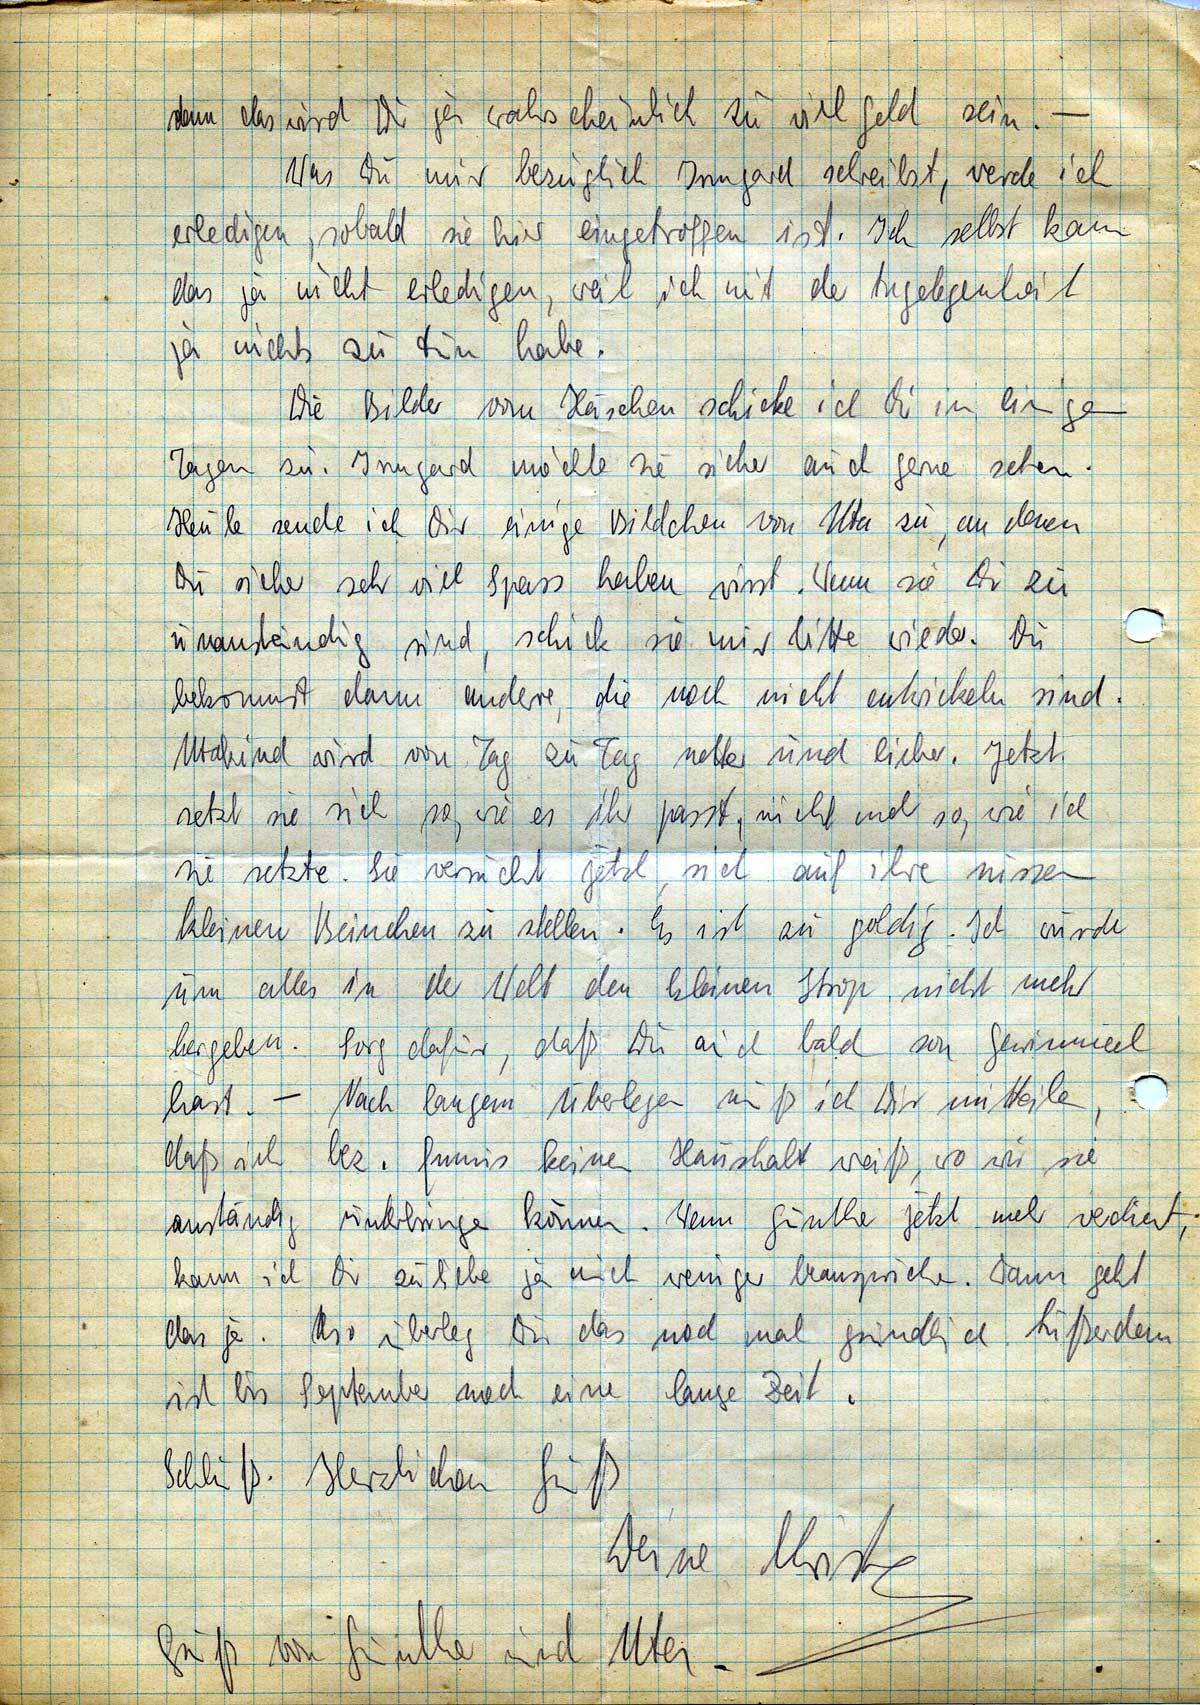 denn das wird Dir ja wahrscheinlich zu viel Geld sein. —
Was Du mir bezüglich Irmgard schreibst, werde ich
erledigen, sobald sie hier eingetroffen ist. Ich selbst kann
das ja nicht erledigen, weil ich mit der Angelegenheit
ja nichts zu tun habe.
Die Bilder vom Häschen schicke ich Dir in einigen
Tagen zu. Irmgard möchte sie sicher auch gerne sehen.
Heute sende ich Dir einige Bildchen von Uta zu, an denen
Du sicher sehr viel Spass haben wirst. Wenn sie Dir zu
unanständig sind, schick sie mir bitte wieder. Du
bekommst dann andere, die noch nicht entwickeln sind.
Utakind wird von Tag zu Tag netter und lieber. Jetzt
setzt sie sich so, wie es ihr passt, nicht mehr so, wie ich
sie setzte. Sie versucht jetzt, sich auf ihre süssen
kleinen Beinchen zu stellen. Es ist zu goldig. Ich würde
um alles in der Welt den kleinen Strop nicht mehr
hergeben. Sorg dafür, daß Du auch bald son
hast. — Nach langem Überlegen muß ich Dir mitteilen,
daß ich bez. keinen Haushalt weiß, wo wir sie
anständig unterbringen können. Wenn Günther jetzt mehr verdient,
kann ich Dir zuliebe ja auch weniger beanspruchen. Dann geht
das ja. Also überleg Dir das noch mal gründlich. Außerdem
ist bis September noch eine lange Zeit.
Schluß. Herzlichen Gruß
Deine
Gruß von Günther und Uta. -